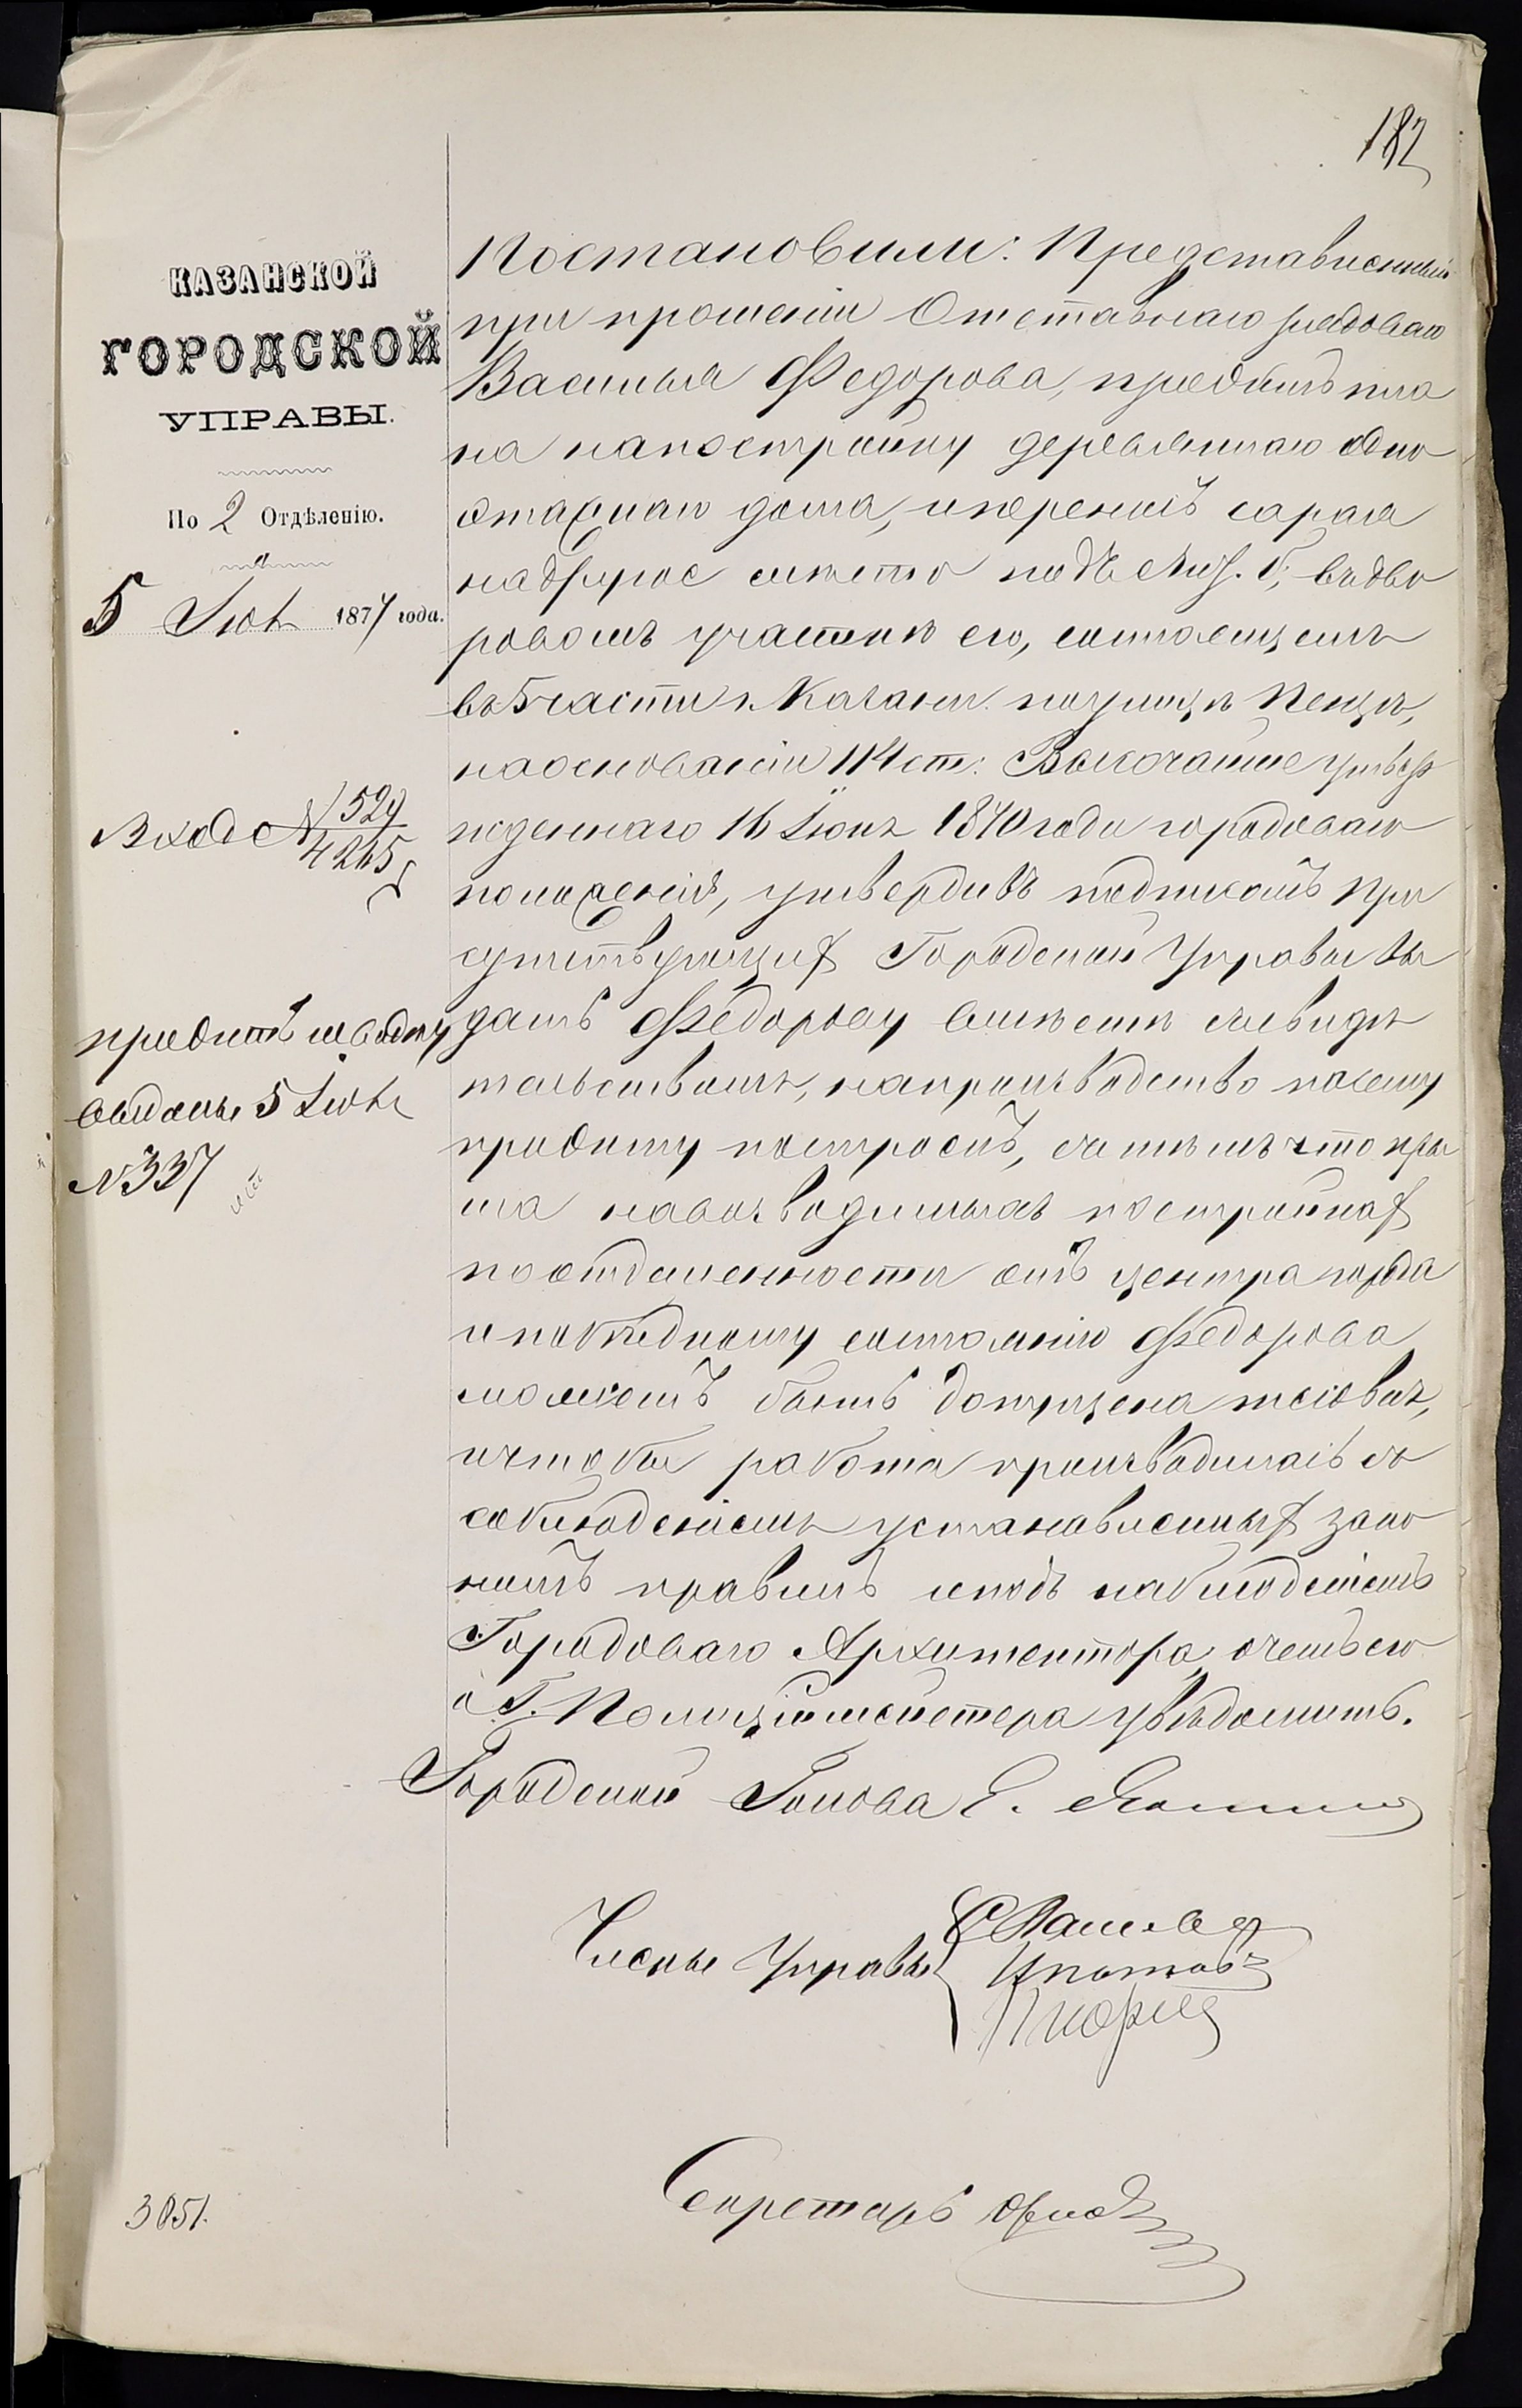 182
КАЗАНСКОЙ
ГОРОДСКОЙ
УПРАВЫ.
По 2 Отдѣленію.
5 Іюл 1877 года.
Входе № 529
4265
проектъ
выданы 5 Іюл
№ 337
Постановили: Представленный
при прошеніи Отставнаго рядоваго
Василья Федорова, проэктъ пла
на на постройку деревяннаго одно
этажнаго дома, и перенося сарая
на другое место подъ лит. б, въ дво
ровомъ участкѣ его, состоящемъ
въ 5 части г. Казани по улицѣ
на основаніи 114 ст: Высочайше утвер
жденнаго 16 Іюня 1870 года городоваго
положенія, утвердивъ подписомъ при
сутствующихъ Городской Управы вы
дать Федорову вмѣстѣ свидѣ
тельствомъ, на производство по сему
проэкту построекъ, съ тѣмъ что кры
ша на возводимыхъ постройкахъ
по отдаленности отъ центра города
и по бѣдному состоянію Федорова
можетъ быть допущена тесовая,
и чтобы работа производилась съ
соблюденіемъ установленныхъ зако
номъ правилъ и подъ наблюденіемъ
Городоваго Архитектора, о чемъ его
и Г. Полицiймейстера увѣдомить.
Городской Голова Е.
Члены Управы
Ипатовъ
Секретарь
3051.